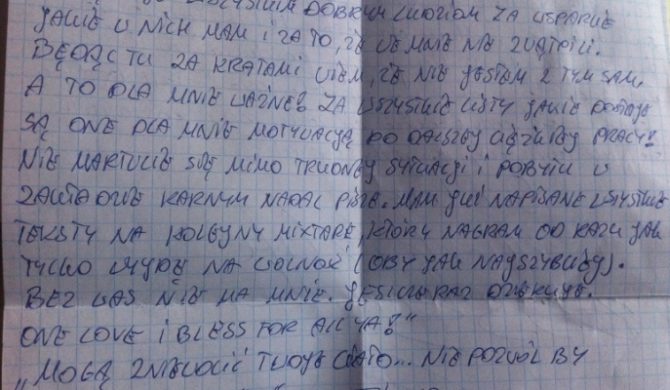 WSZYSTKIM DOBRYM LUDZIOM ZA WSPARCIE
JAKIE U NICH MAM I ZA TO, ŻE WE MNIE NIE ZWĄTPILI.
BĘDĄC TU ZA KRATAMI WIEM, ŻE NIE JESTEM Z TYM SAM,
A TO DLA MNIE WAŻNE! ZA WSZYSTKIE LISTY JAKIE DOSTAJĘ
SĄ ONE DLA MNIE MOTYWACJĄ DO DALSZEJ CIĘŻKIEJ PRACY!
NIE MARTWCIE SIĘ MIMO TRUDNEJ SYTUACJI I POBYTU W
ZAKŁADZIE KARNYM NADAL PISZĘ. MAM JUŻ NAPISANE WSZYSTKIE
TEKSTY NA KOLEJNY MIXTAPE, KTÓRY NAGRAM OD RAZU JAK
TYLKO WYJDĘ NA WOLNOŚĆ (OBY JAK NAJSZYBCIEJ).
BEZ WAS NIE MA MNIE. JESZCZE RAZ DZIĘKUJĘ.
ONE LOVE I BLESS FOR ALL YA!"
„MOGĄ ZNIEWOLIĆ TWOJE CIAŁO... NIE POZWÓL BY